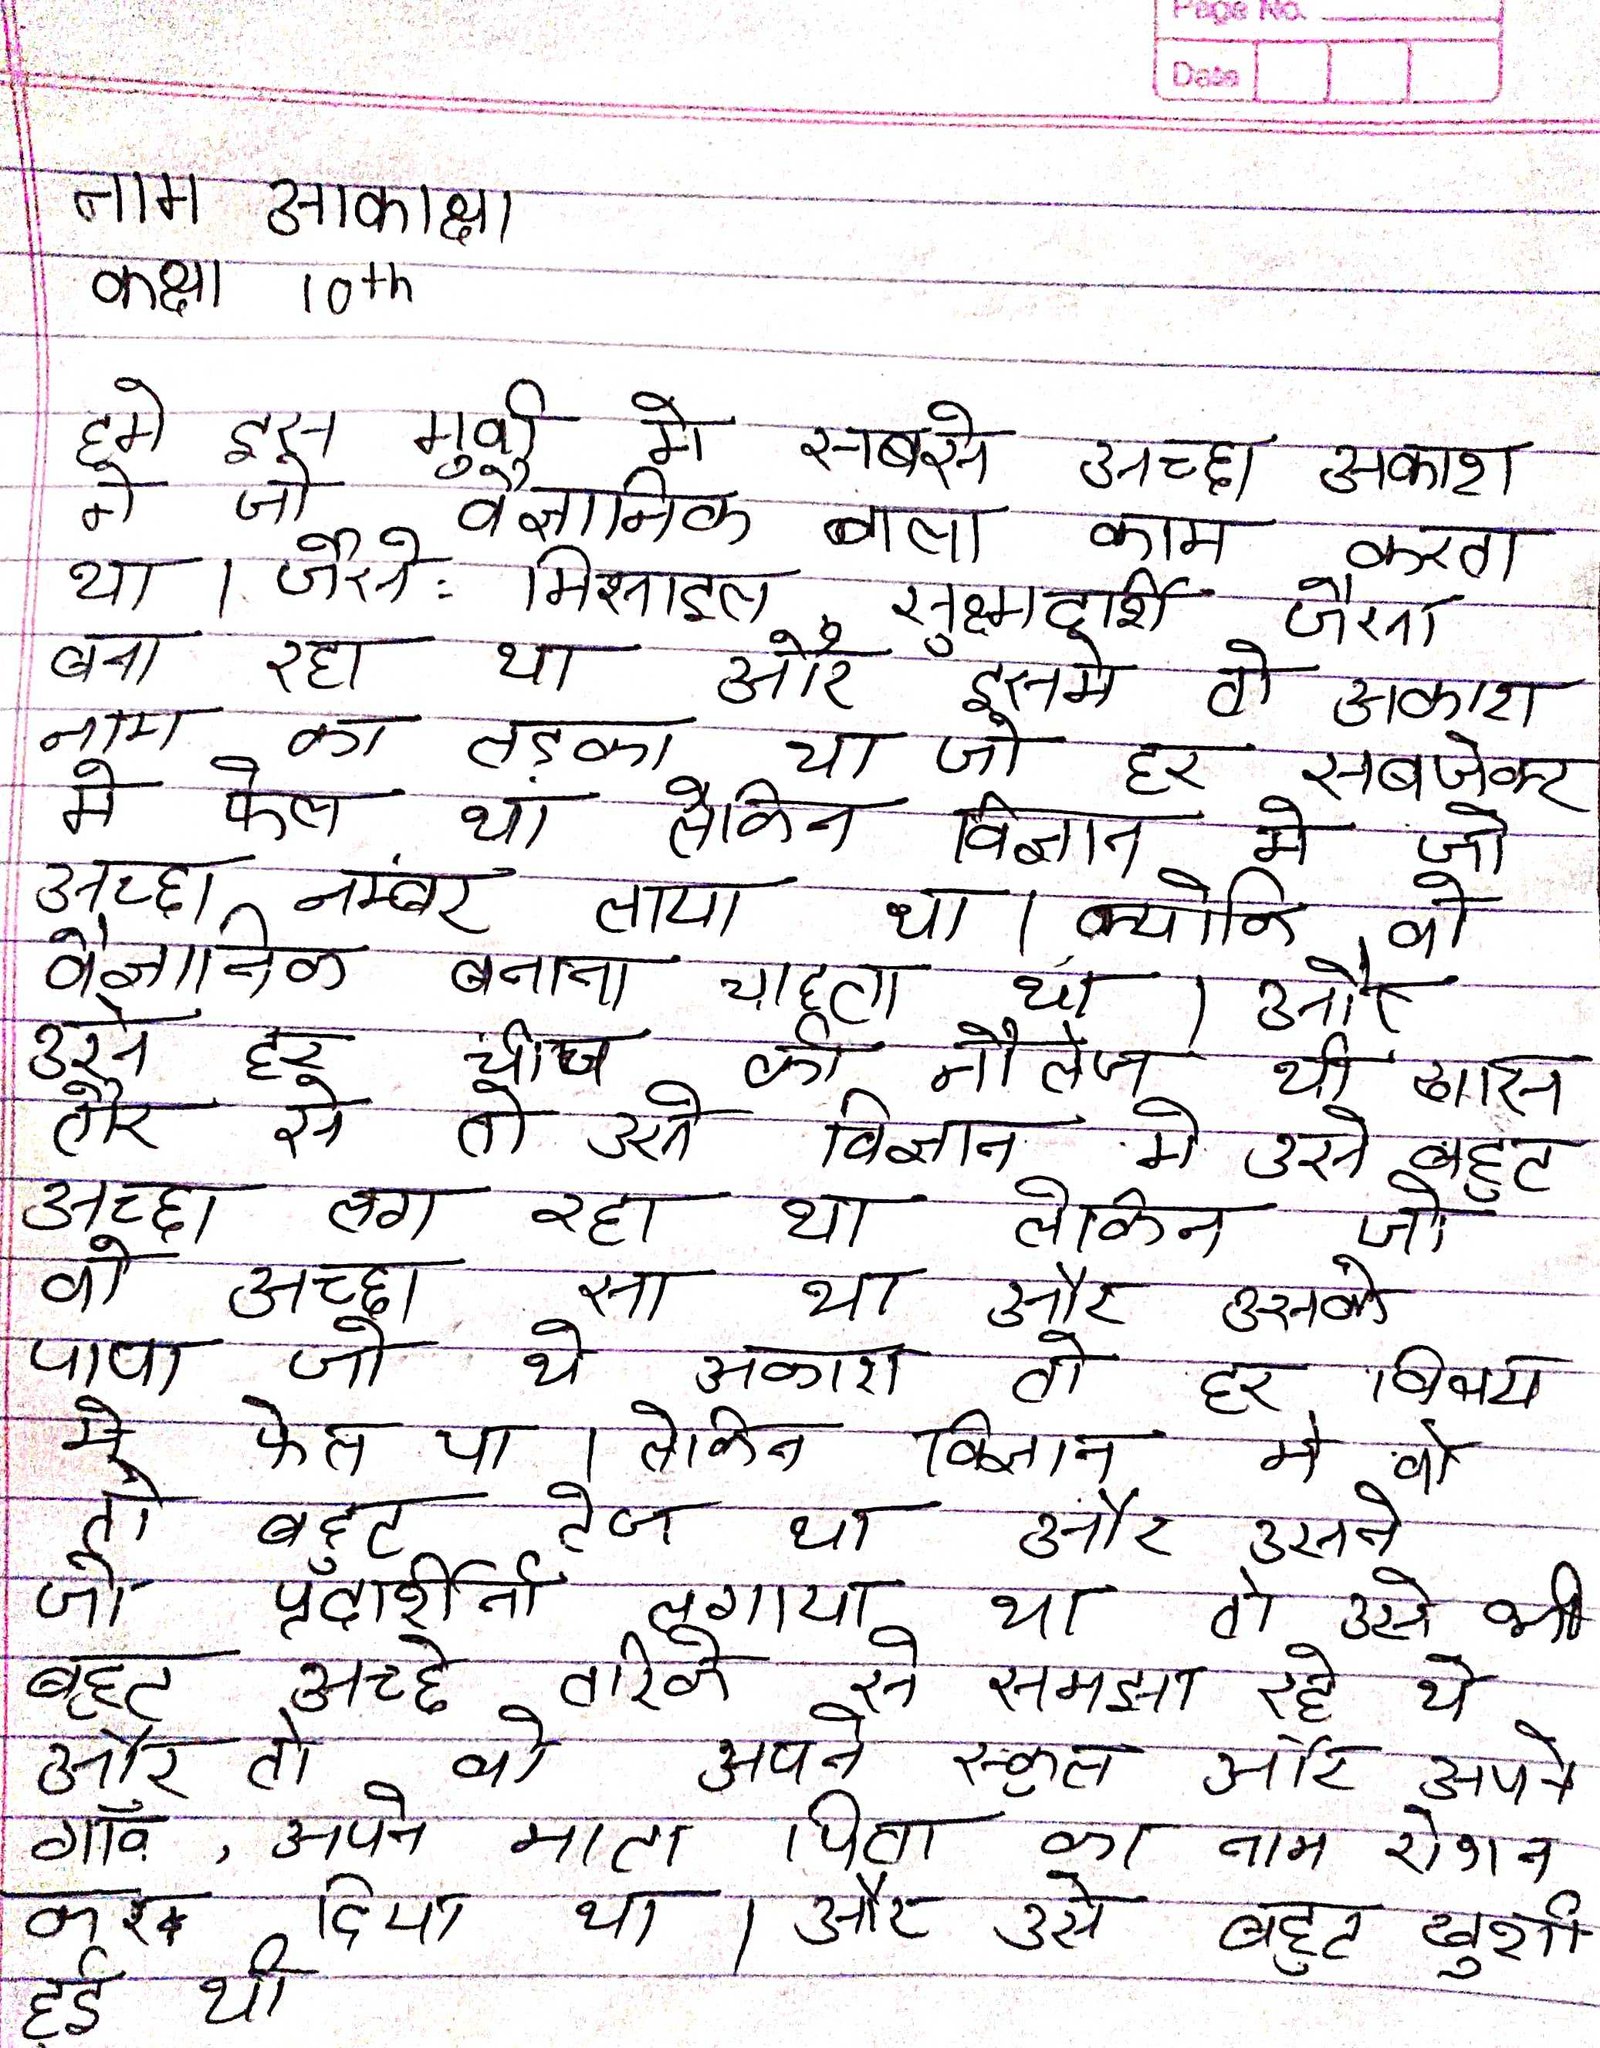 Page No.
Date
नाम आकाक्षा
कक्षा 10th
हमे इस मुवी मे सबसे अच्छा अकाश
ने जो वैज्ञानिक वाला काम करता
था । जैसे: मिसाइल, सुक्ष्मदर्शि जैसा
बना रहा था और इसमे तो अकाश
नाम का लड़का था जो हर सबजेक्ट
मे फेल था लेकिन विज्ञान मे जो
अच्छा नम्बर लाया था । क्योकि वो
वैज्ञानिक बनाना चाहता था । और
उसे हर चीज की नौलेज थी खास
तौर से तो उसे विज्ञान मे उसे बहुट
अच्छा लग रहा था लेकिन जो
वो अच्छा सा था और उसके
पापा जो थे अकाश तो हर विषय
मे फेल था । लेकिन विज्ञान मे वो
तो बहुट टेज था और उसने
जो प्रदार्शीनी लगाया था तो उसे भी
बहुट अच्छे तरिके से समझा रहे थे
और तो वो अपने स्कुल और अपने
गाँव, अपने माता पिता का नाम रोशन
कर दिया था । और उसे बहुट खुशी
हुई थी